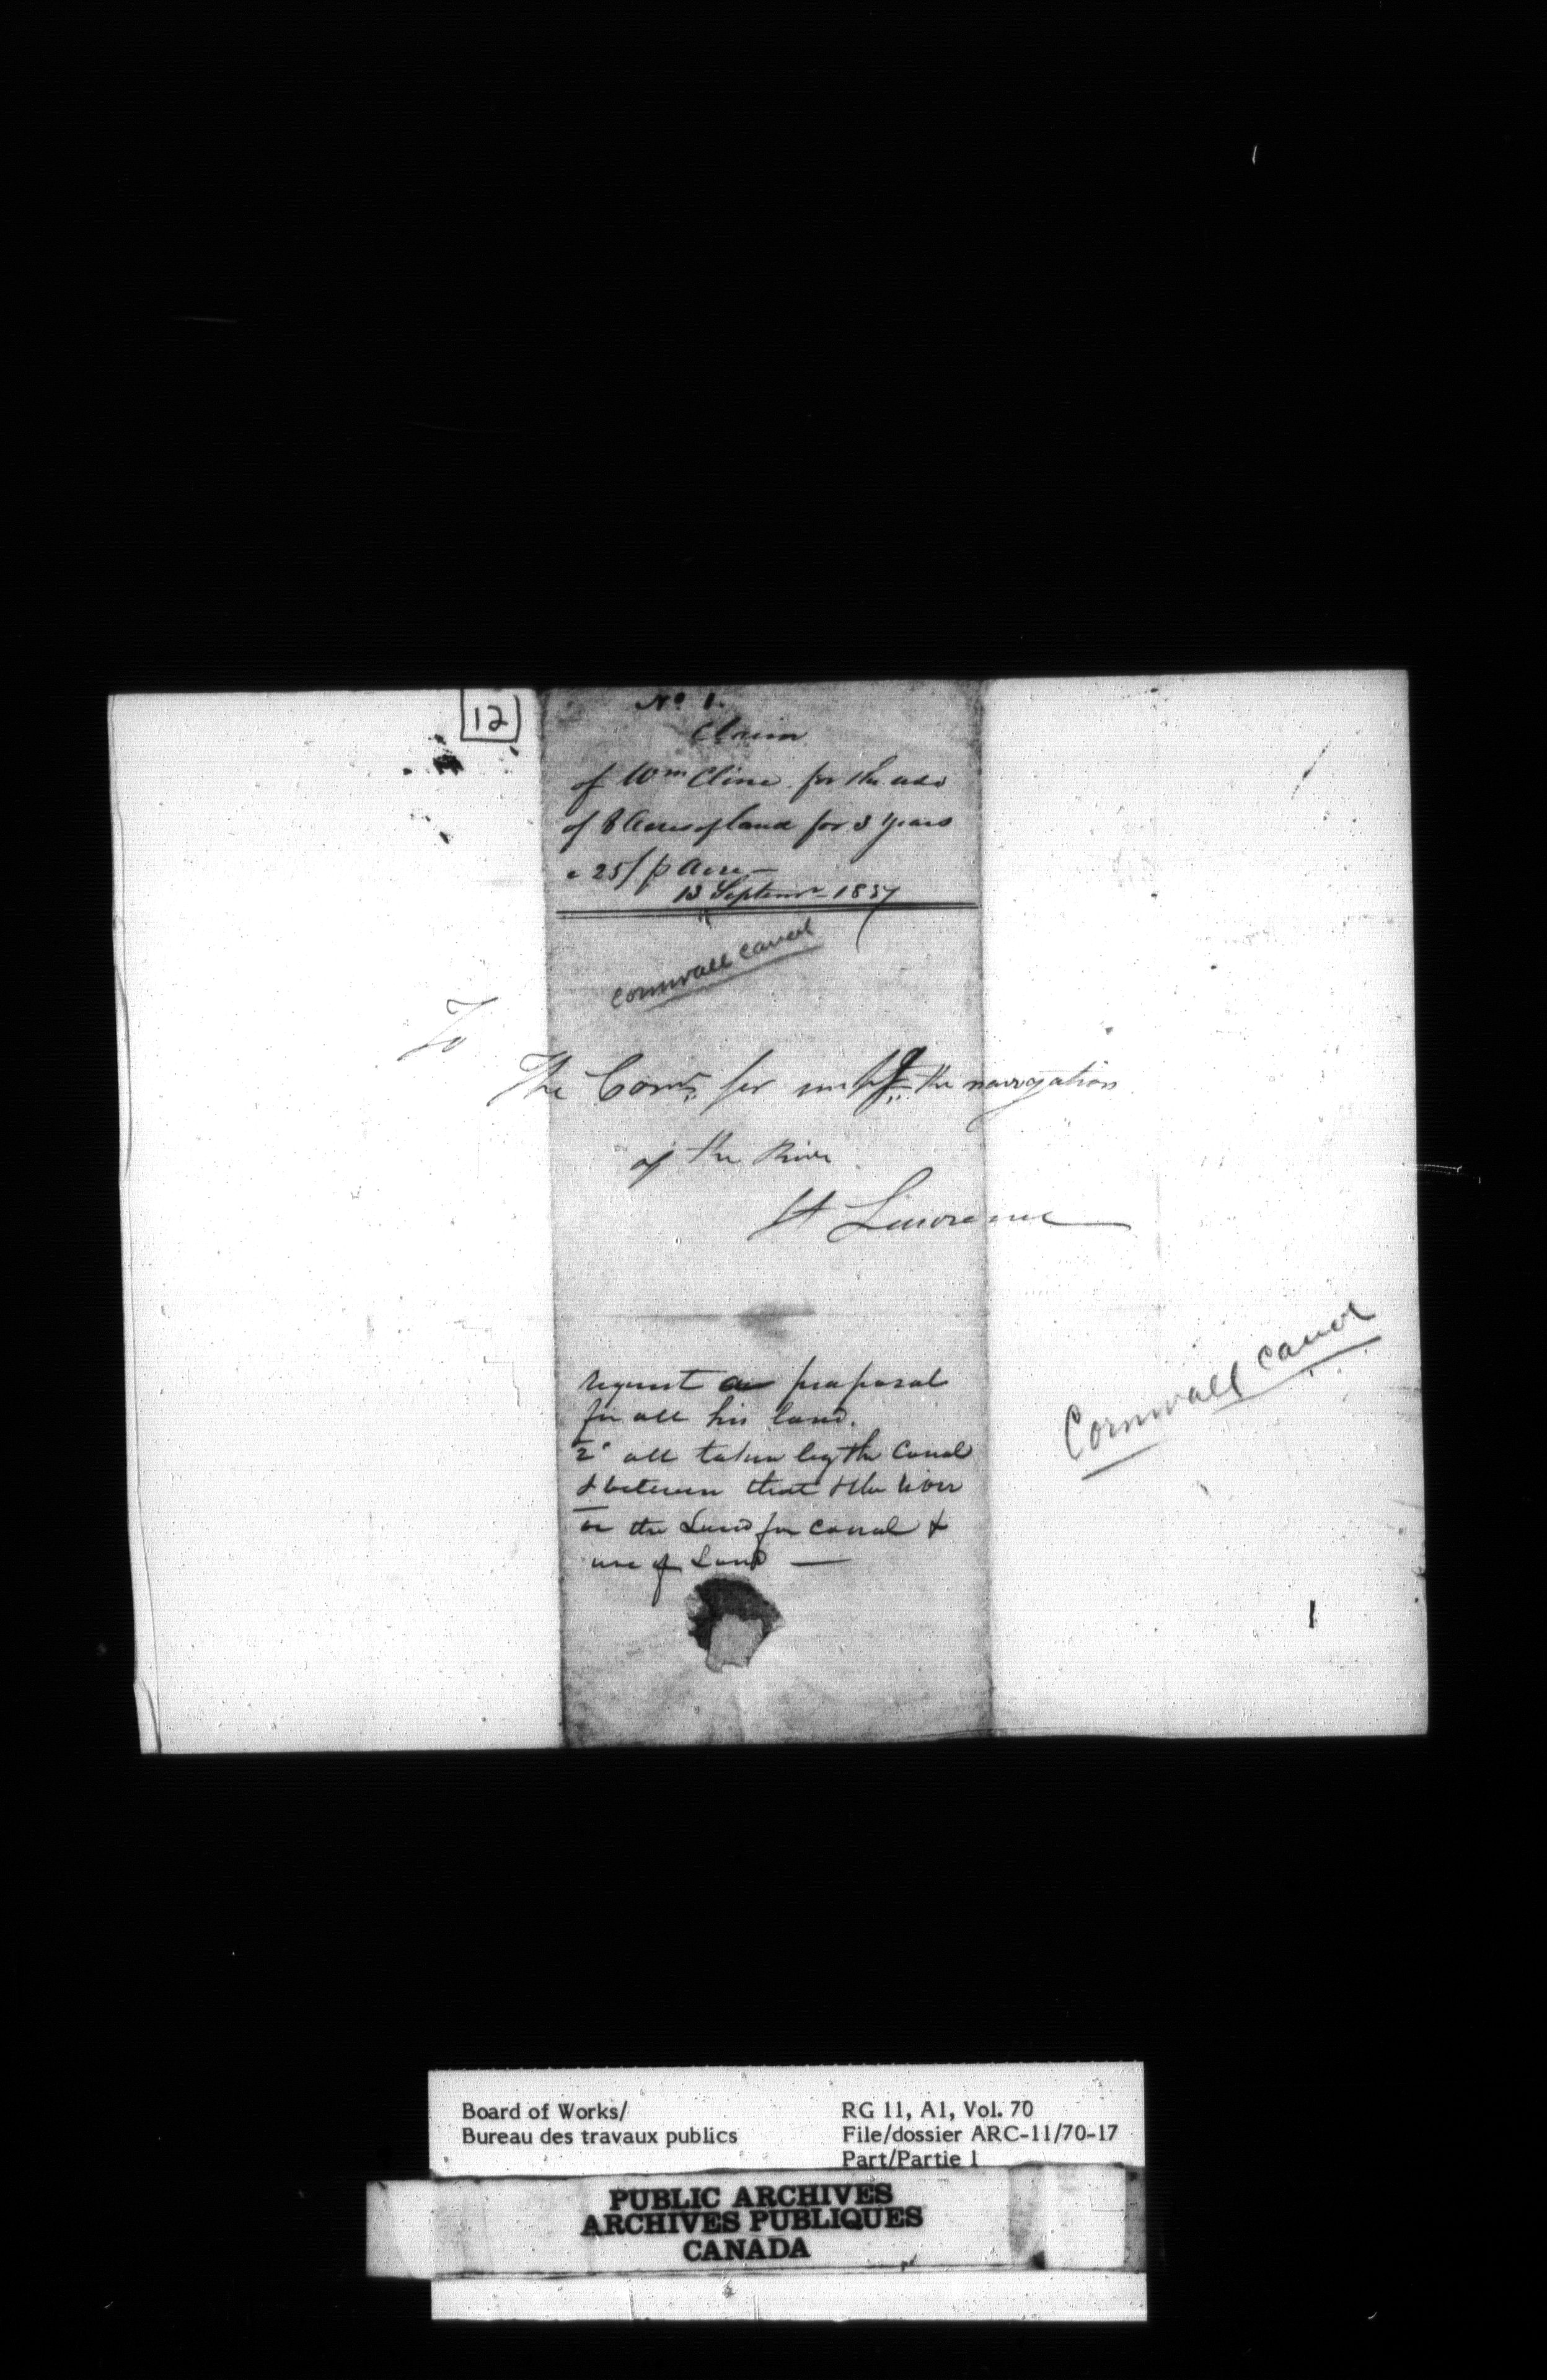 12
No 1.
Claim
of Wm Cline for the use
of 6 Acres of land for 3 Years
a 25/ p Acre —
13 Septemr - 1837
Cornwall Canal
To
The Comrs for the navigation
of the River
St Lawrence
request a proposal
for all his land.
2° all taken by the Canal
& between that & the river
or the Land for Canal &
use of Land —
Cornwall Canal
1
Board of Works/
Bureau des travaux publics
RG 11, A1, Vol. 70
File/dossier ARC-11/70-17
Part/Partie 1
PUBLIC ARCHIVES
ARCHIVES PUBLIQUES
CANADA